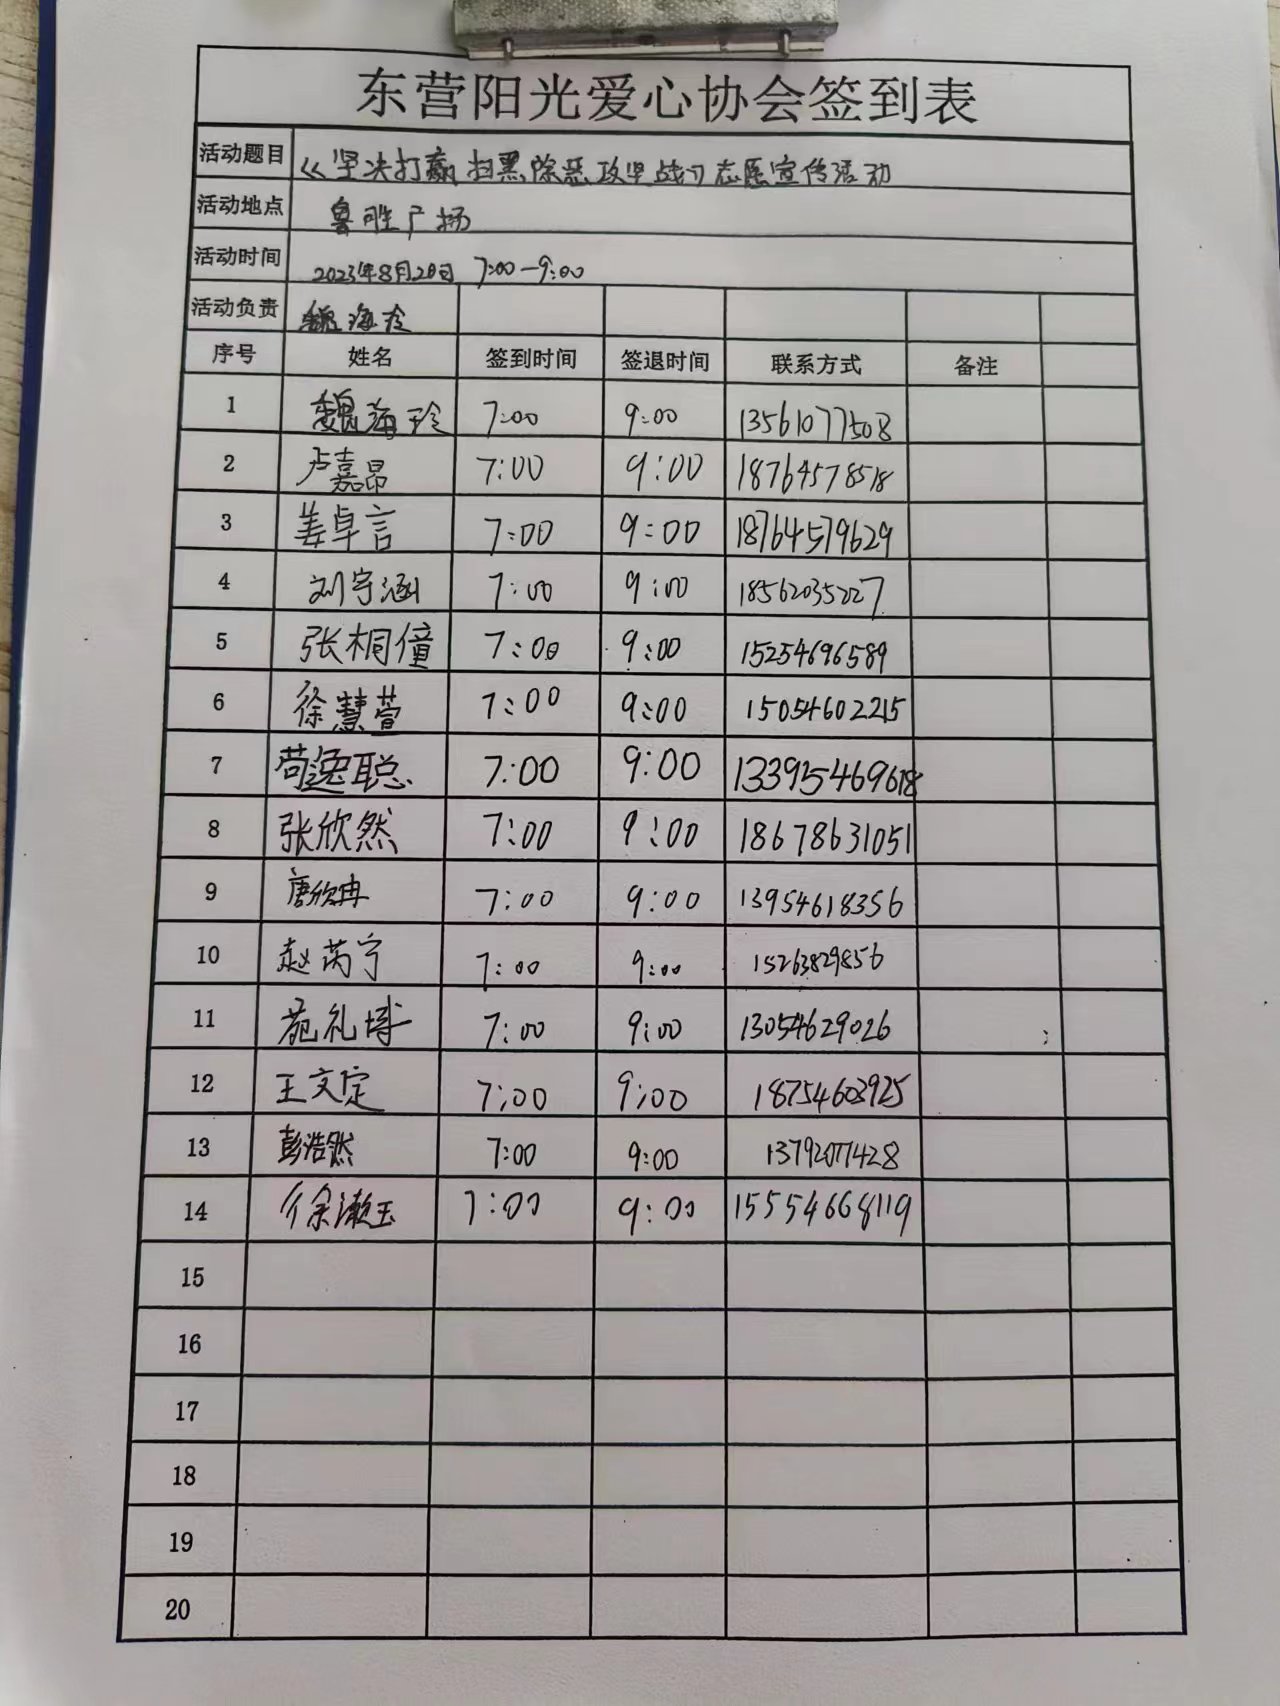 东营阳光爱心协会签到表
活动题目 《坚决打赢扫黑除恶攻坚战》志愿宣传活动
活动地点 鲁胜广场
活动时间 2023年8月20日 7:00-9:00
活动负责 魏海玲
序号 姓名 签到时间 签退时间 联系方式 备注
1 魏海玲 7:00 9:00 13561077508
2 卢嘉昂 7:00 9:00 18764578518
3 姜卓言 7:00 9:00 18764579629
4 刘宇涵 7:00 9:00 18562035227
5 张桐僮 7:00 9:00 15254696589
6 徐慧萱 7:00 9:00 15054602215
7 苟逸聪 7:00 9:00 13395469618
8 张欣然 7:00 9:00 18678631051
9 唐欣冉 7:00 9:00 13954618356
10 赵芮宁 7:00 9:00 15263829856
11 苑礼博 7:00 9:00 13054629026
12 王文定 7:00 9:00 18754603925
13 彭浩然 7:00 9:00 13792077428
14 徐漱玉 7:00 9:00 15554668119
15
16
17
18
19
20